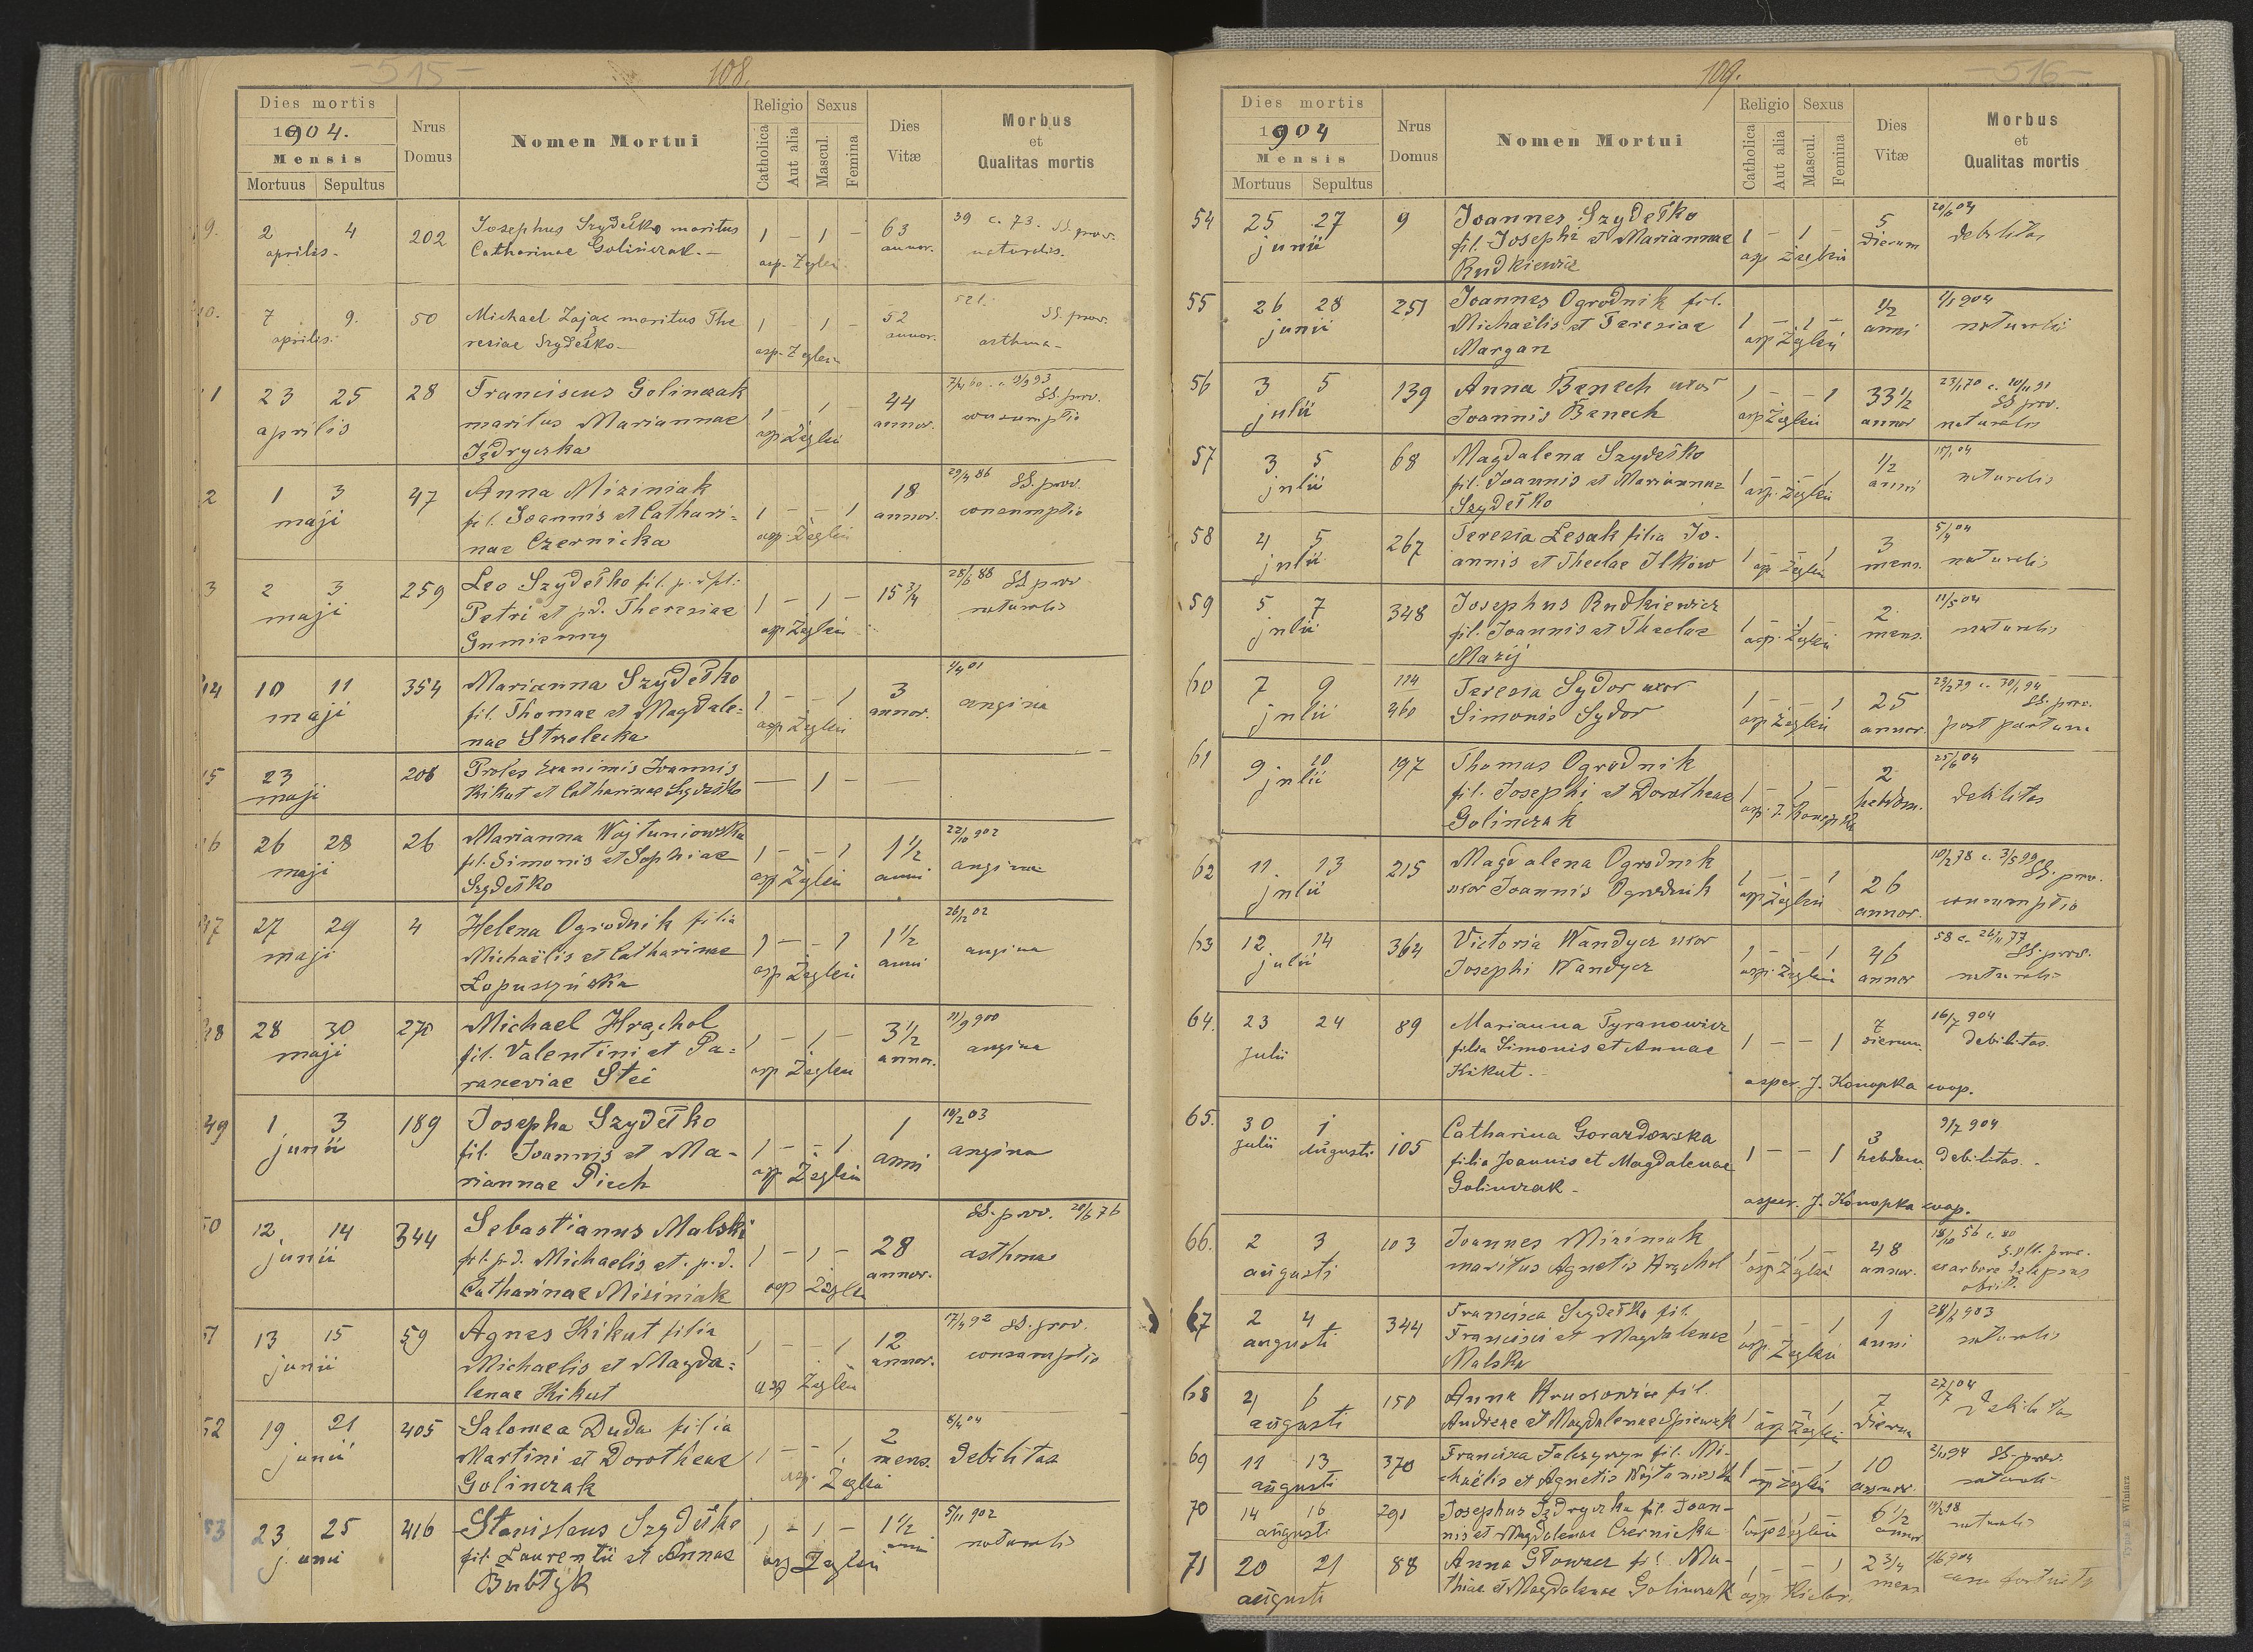 -515-
108.
Dies mortis
1904.
Mensis
Mortuus Sepultus
Nrus Domus
Nomen Mortui
Religio Sexus
Catholica Aut alia Mascul. Femina
Dies Vitæ
Morbus et Qualitas mortis
9. 2 4 202 Josephus Szydełko maritus 1 - 1 - 63 39 c. 73. SS. prov.
aprilis. Catharinae Golinczak. - asp. Zeglen annor. naturalis.
10. 7 9. 50 Michael Zając maritus The 1 - 1 - 52 SS. prov.
aprilis. resiae Szydełko - asp. Zeglen annor. asthma -
1 23 25 28 Franciscus Golinczak 1 - 1 - 44 SS. prov.
aprilis maritus Mariannae asp Żegleń annor. consumptio
Jędryczka
2 1 3 47 Anna Misiniak 1 - - 1 18 29/4 86 SS. prov.
maji fil. Joannis et Cathari= asp. Żegleń annor. consumptio
nae Czernicka
3 2 3 259 Leo Szydełko fil. 1 - 1 - 15 3/4 28/6 88 SS prov
maji Petri et p.d. Theresiae asp Żegleń naturalis
44 10 11 354 Marianna Szydełko 1 - - 1 3 1/4 01
maji fil. Thomae et Magdale= asp Żegleń annor. angina
nae Strzelecka
15 23 208 Proles exanimis Joannis — 1 -
maji Kikut et Catharinae Szydełko
16 26 28 26 Marianna Wojtuniowska 1 - - 1 1 1/2 22/10 902
maji fil. Simonis et Sophiae asp Żegleń anni angina
Szydełko
47 27 29 4 Helena Ogrodnik filia 1 - - 1 1 1/2 26/12 02
maji Michaëlis et Catharinae asp Żegleń anni angina
Łopuszyńska
48 28 30 270 Michael Hrąchol 1 - 1 - 3 1/2 11/9 900
maji fil. Valentini et Pa= asp Żegleń annor. angina
raxeviae Steć
49 1 3 189 Josepha Szydełko 1 - - 1 1 10/2 03
junii fil. Joannis et Ma- asp Żegleń anni angina
riannae Piech
50 12 14 344 Sebastianus Malski 1 - 1 - 28 SS. prov. 20/6 76
junii fil. p.d. Michaelis et p.d. asp Żegleń annor. asthma
Catharinae Misiniak
51 13 15 59 Agnes Kikut filia 1 - - 1 12 17/4 92 SS. prov.
junii Michaelis et Magda= asp Żegleń annor. consumptio
lenae Kikut
52 19 21 405 Salomea Duda filia 1 - - 1 2 8/4 04
junii Martini et Dorotheae asp. Żegleń mens. debilitas
Golinczak
53 23 25 416 Stanislaus Szydełko 1 - 1 - 1 1/2 5/11 902
junii fil. Laurentii et Annae asp Żegleń anni naturalis
Bubłyk
109.
-516-
Dies mortis
1904
Mensis
Mortuus Sepultus
Nrus Domus
Nomen Mortui
Religio Sexus
Catholica Aut alia Mascul. Femina
Dies Vitæ
Morbus et Qualitas mortis
54 25 27 9 Joannes Szydełko 1 - 1 - 5 20/6 04
junii fil. Josephi et Mariannae asp Żegleń dierum debilitas
Rudkiewicz
55 26 28 251 Joannes Ogrodnik fil. 1 - 1 - 1/2 1/1 904
junii Michaëlis et Teresiae asp Żegleń anni naturalis
Margan
56 3 5 139 Anna Benech uxor 1 - - 1 33 1/2 23/1 70 c. 10/11 91
julii Joannis Benech asp Żegleń annor SS prov.
naturalis
57 3 5 68 Magdalena Szydełko 1 - - 1 1/2 15/1 04
julii fil. Joannis et Mariannae asp. Żegleń anni naturalis
Szydełko
58 4 5 267 Teresia Lesak filia Jo- 1 - - 1 3 5/4 04
julii annis et Theclae Ilków asp Żegleń mens. naturalis
59 5 7 348 Josephus Rudkiewicz 1 - 1 - 2 11/5 04
julii fil. Joannis et Theclae asp. Żegleń mens. naturalis
Mazij
60 7 9 114 Teresia Sydor uxor 1 - - 1 25 SS. prov.
julii 460 Simonis Sydor asp Żegleń annor. post partum
61 9 10 197 Thomas Ogrodnik 1 - 1 - 2 25/6 04
julii fil. Josephi et Dorotheae asp. J. Konopka hebdom. debilitas
Golinczak
62 11 13 215 Magdalena Ogrodnik 1 - - 1 26 10/2 78 c. 3/5 99 SS. prov.
julii uxor Joannis Ogrodnik asp Żegleń annor. consumptio
63 12 14 364 Victoria Wandycz uxor 1 - - 1 46 58 c. 26/11 77 SS. prov.
julii Josephi Wandycz asp. Żegleń annor naturalis
64. 23 24 89 Marianna Tyranowicz 1 - - 1 7 16/7 904
Julii filia Simonis et Annae dierum. debilitas.
Kikut. - asper. J. Konopka coop.
65. 30 1 105 Catharina Gorazdowska 1 - - 1 3 9/7 904
Julii Augusti filia Joannis et Magdalenae hebdom. debilitas. -
Golinczak - asper. J. Konopka coop.
66. 2 3 103 Joannes Misiniak 1 - 1 - 48 18/10 56 c. 80
augusti maritus Agnetis Hrąchol asp Żegleń annor. ex arbore delapsus
obiit.
67 2 4 344 Francisca Szydełko fil. 1 - - 1 1 28/6 903
augusti Francisci et Magdalenae asp. Żegleń anni naturalis
Malska
68 4 6 150 Anna Hrussowicz fil. 1 - - 1 7 27/7 04
augusti Andreae et Magdalenae Śpiewak asp Żegleń dierum debilitas
69 11 13 370 Francisca fil. Mi- 1 - - 1 10 SS. prov.
augusti chaëlis et Agnetis asp Żegleń annor. naturalis
70 14 16 291 Josephus Jędryczka fil. Joan- 1 - 1 - 6 1/2
augusti nis et Magdalenae Czernicka asp Żegleń annor naturalis
71 20 21 88 Anna Głowacz fil. Ma- 1 - - 1 2 3/4 904
augusti thiae et Magdalenae Golinczak asp mens casu fortuito
Typis E. Winiarz